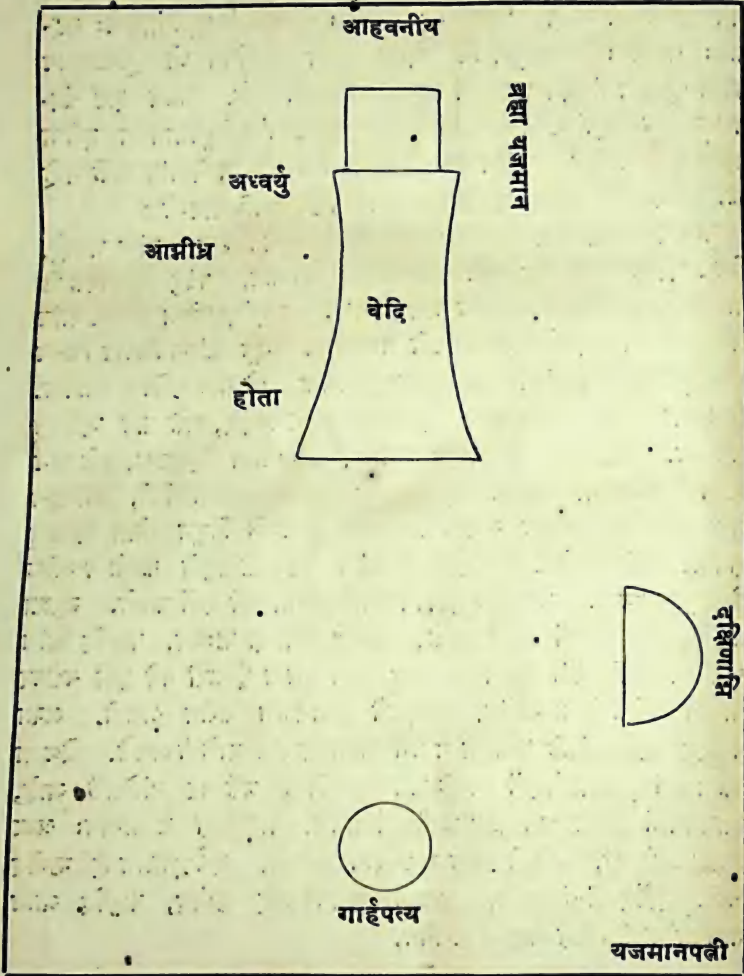 आहवनीय
ब्रह्मा यजमान
अध्वर्यु
आग्नीध्र
वेदि
होता
दक्षिणाग्नि
गार्हपत्य
यजमानपत्नी